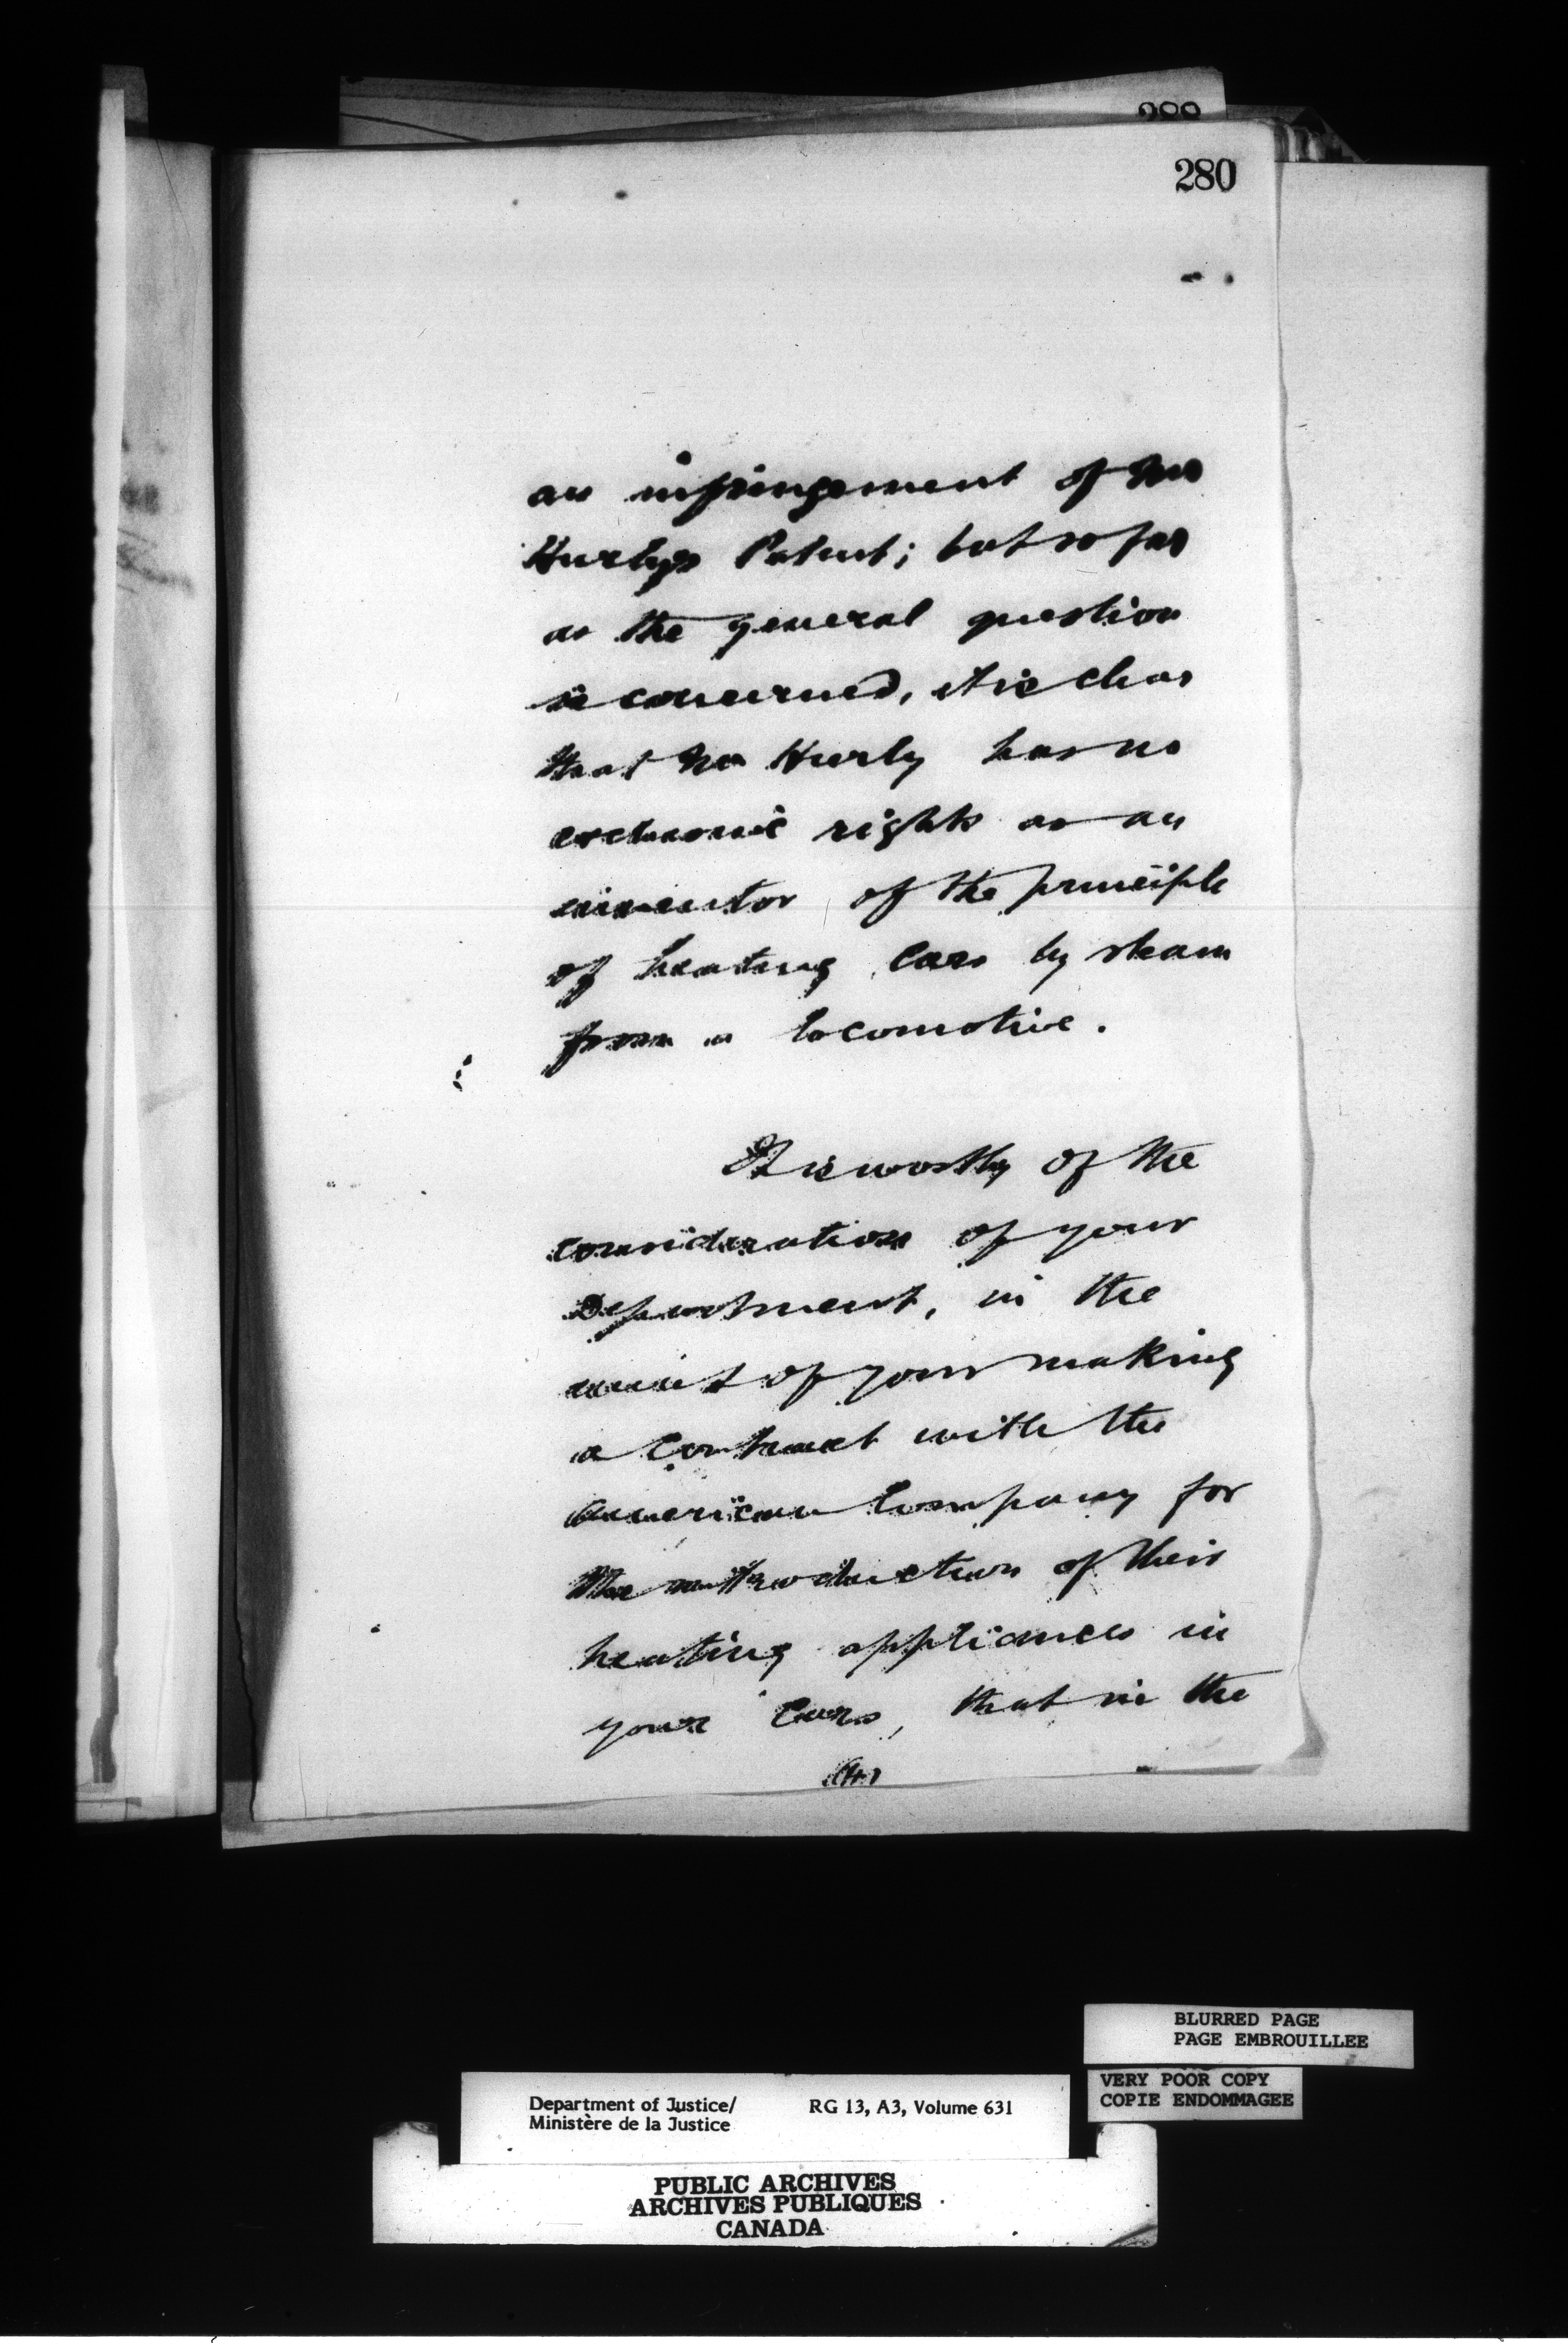 288
280
an infringement of Mr
Hurlys Patent; but so far
as the general question
is concerned, it is clear
that Mr Hurly has no
exclusive rights as an
inventor of the principle
of heating cars by steam
from a locomotive.
It is worthy of the
consideration of your
Department, in the
event of your making
a contract with the
American Company for
the introduction of their
heating appliances in
your Cars, that in the
(4)
BLURRED PAGE
PAGE EMBROUILLEE
VERY POOR COPY
COPIE ENDOMMAGEE
Department of Justice/ RG 13, A3, Volume 631
Ministère de la Justice
PUBLIC ARCHIVES
ARCHIVES PUBLIQUES
CANADA